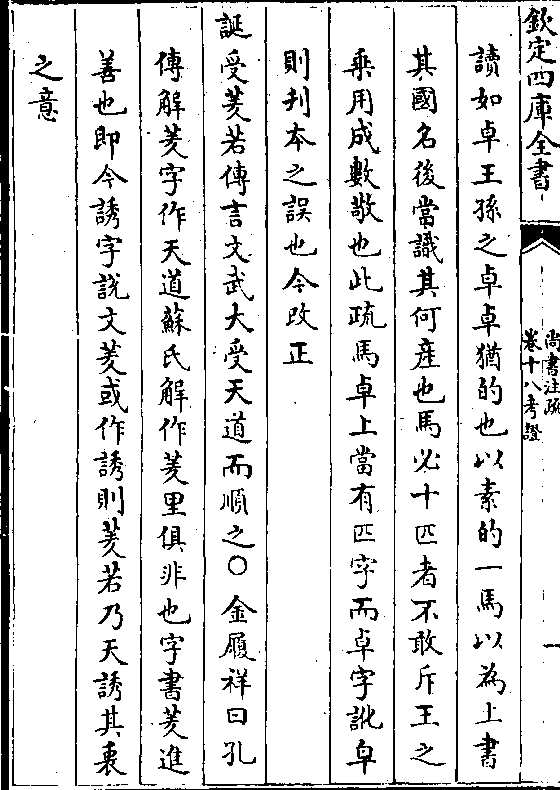 欽定四庫全書
尚書注疏
卷十八考證
一
讀如卓王孫之卓卓猶的也以素的一馬以為上書
其國名後當識其何産也馬必十匹者不敢斥王之
乘用成數敬也此疏馬卓上當有匹字而卓字訛皁
則刋本之誤也今改正
誕受羑若傳言文武大受天道而順之○金履祥曰孔
傳解羑字作天道蘇氏解作羑里俱非也字書羑進
善也即今誘字説文羑或作誘則羑若乃天誘其衷
之意